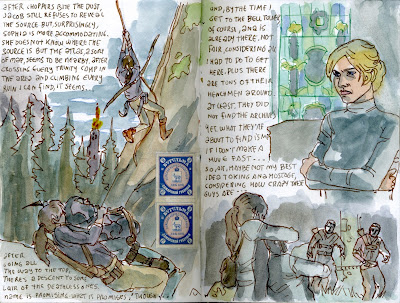 AFTER CHOPPERS BITE THE DUST,
JACOB STILL REFUSES TO REVEAL
THE SOURCE BUT, SURPRISINGLY,
SOPHIA IS MORE ACCOMMODATING.
SHE DOES NOT KNOW WHERE THE
SOURCE IS BUT THE ATLAS, A SORT
OF MAP, SEEMS TO BE NEARBY, AFTER
CROSSING EVERY TRINITY CAMP IN
THE GRID AND CLIMBING EVERY
RUIN I CAN FIND, IT SEEMS.
AFTER
GOING ALL
THE WAY TO THE TOP,
THERES A DESCENT TO SOME
LAIR OF THE DEATHLESS ONES.
NAME IS PROMISING. WHAT IS PROMISES, THOUGH
AND, BY THE TIME I
GET TO THE BELL TOWER
OF COURSE, ANA IS
ALREADY THERE. NOT
FAIR CONSIDERING ALL I
HAD TO DO TO GET
HERE. PLUS THERE
ARE TONS OF THEIR
HENCHMEN AROUND
AT LEAST, THEY DID
NOT FIND THE ARCHIVES
YET. WHAT THEY'RE
ABOUT TO FIND IS ME
IF I DON'T MAKE A
MOVE FAST...
SO, AH, MAYBE NOT MY BEST
IDEA TAKING ANA HOSTAGE,
CONSIDERING HOW CRAZY THESE
GUYS ARE